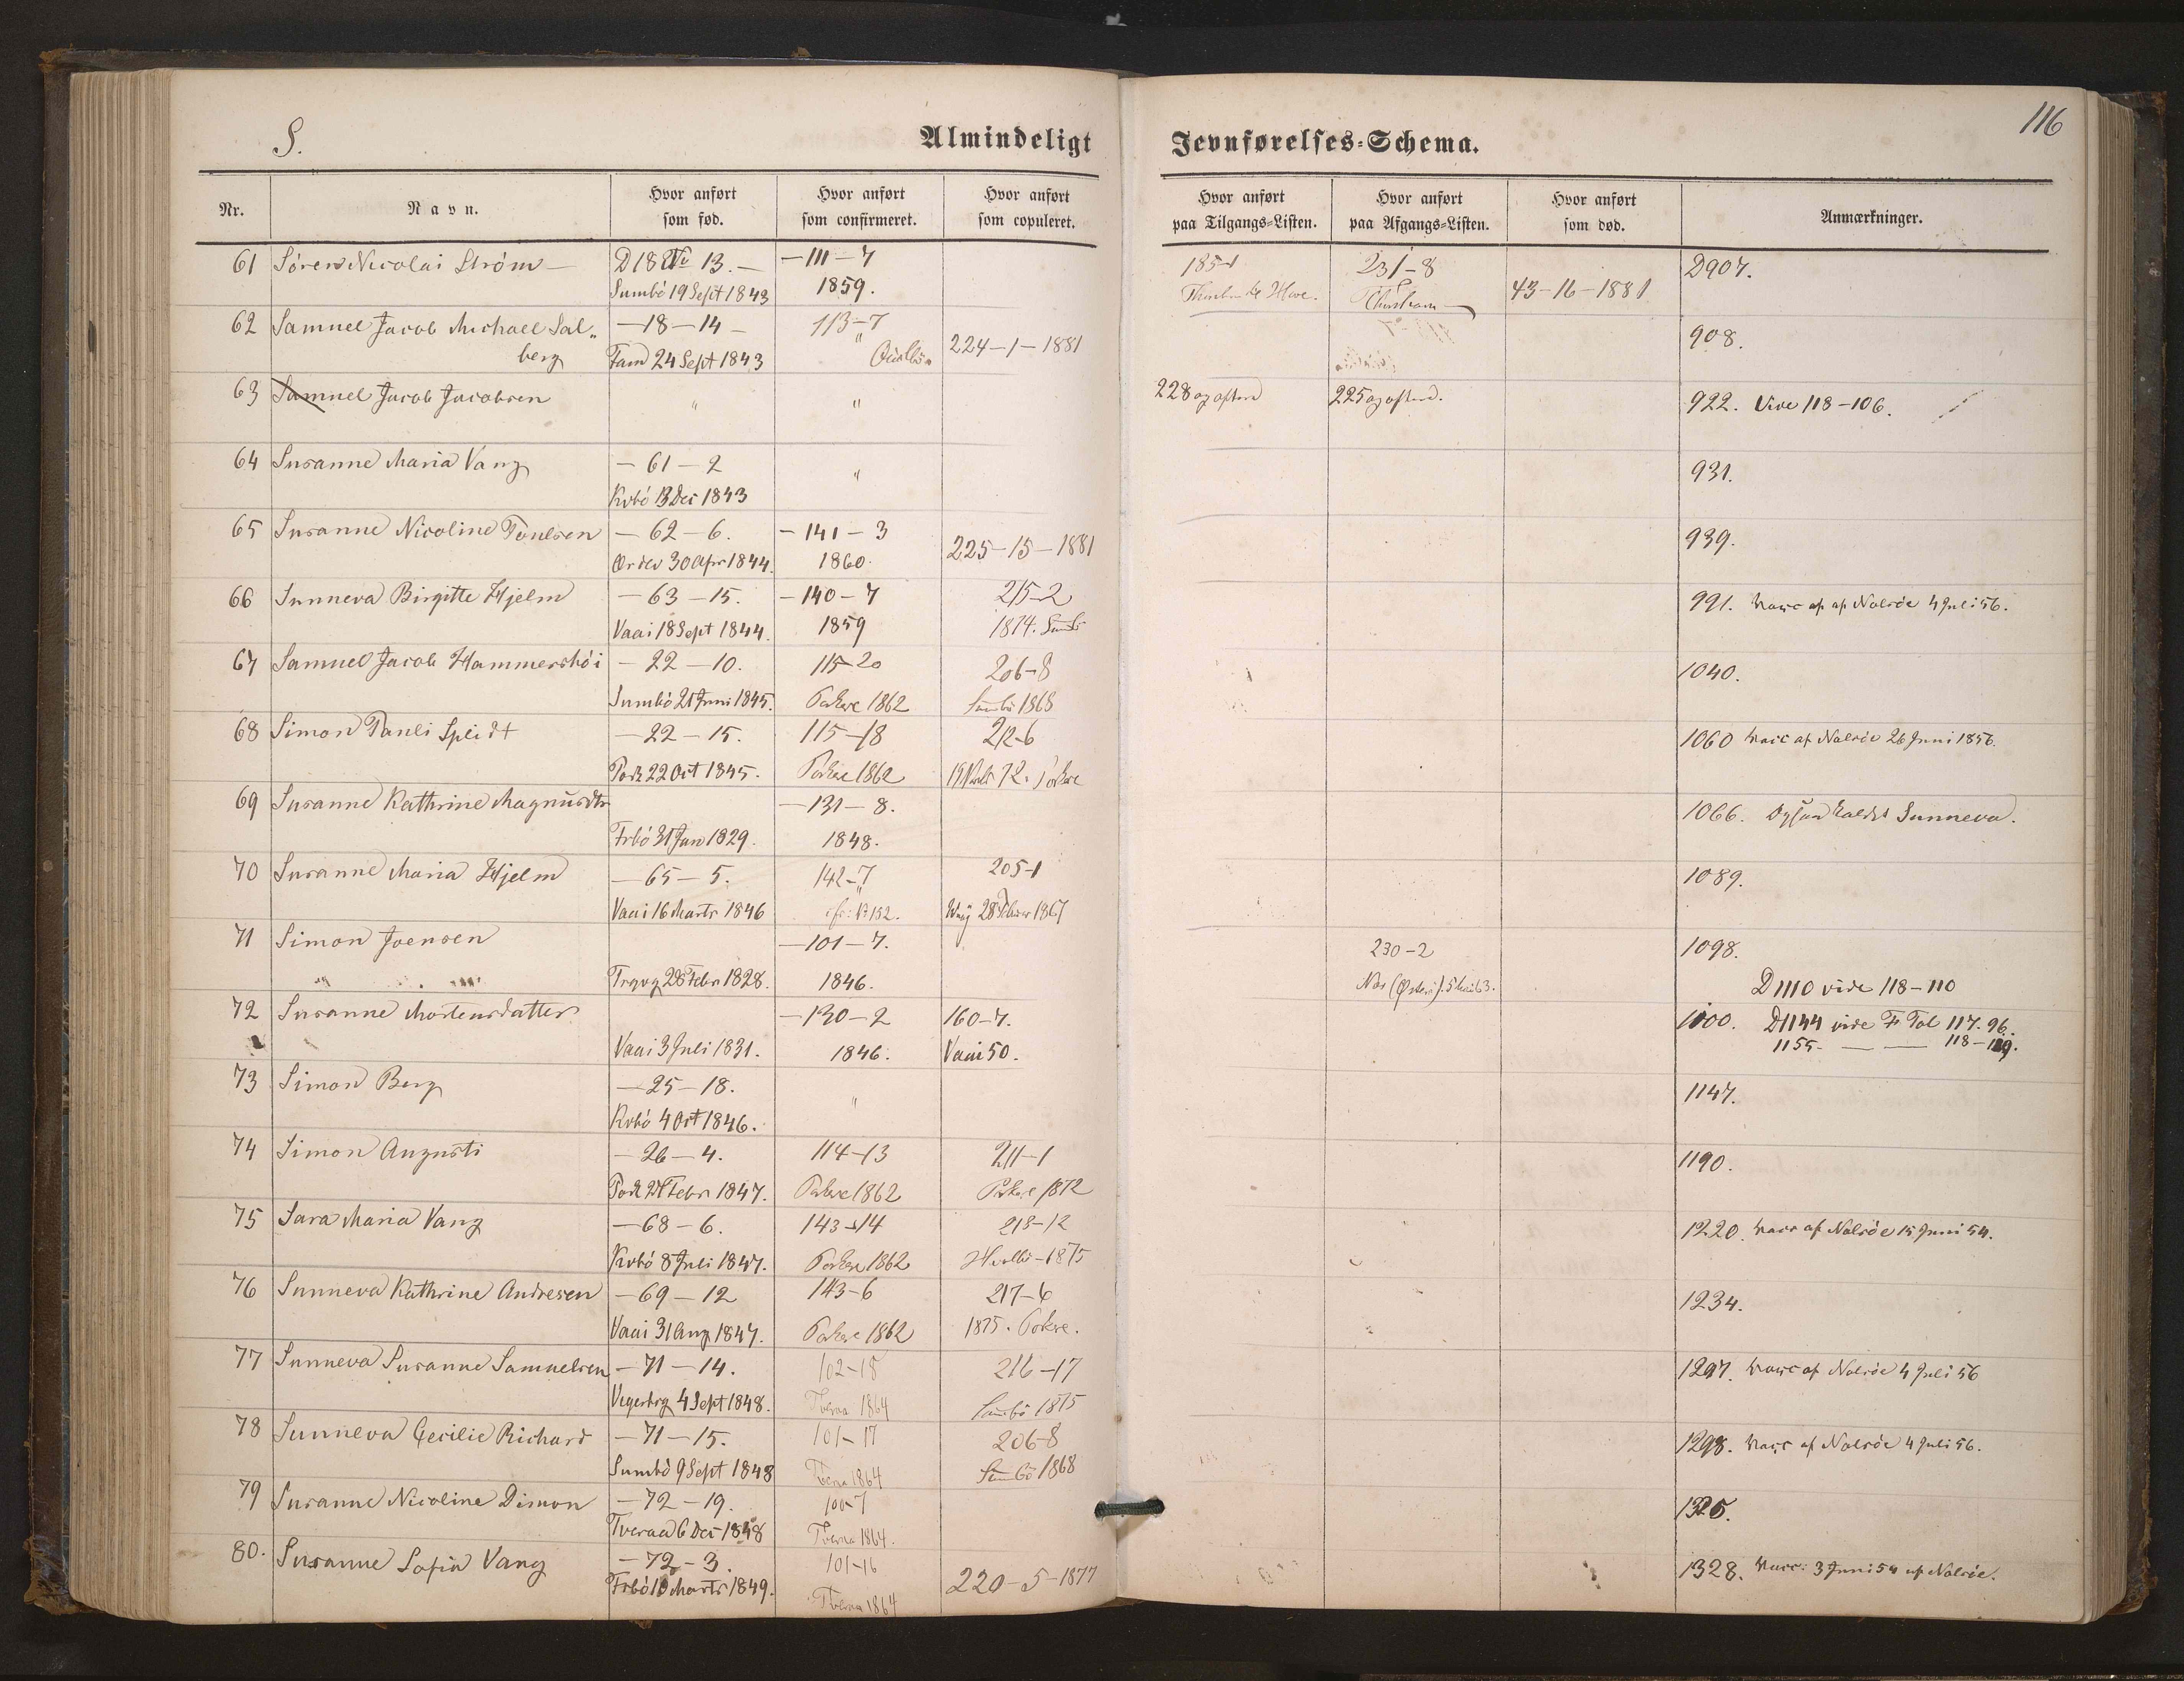 S.
Almindeligt
Jevnførelses-Schema.
116
Nr. Navn. Hvor anført som fød. Hvor anført som confirmeret. Hvor anført som copuleret. Hvor anført paa Tilgangs-Listen. Hvor anført paa Afgangs-Listen. Hvor anført som død. Anmærkninger.
61 Sören Nicolai Ström D18 No 13. — 111 — 7 1854 231-8 D907.
Sumbö 19 Sept 1843 1859. 43-16-1881
62 Samuel Jacob Michael Sal- — 18 — 14 — 113-7 224-1-1881 908.
berg Fam 24 Sept 1843 "
63 Samuel Jacob Jacobsen " " 228 225 922. Vide 118-106.
64 Susanne Maria Vang — 61 — 2 " 931.
Kvbö 13 Dec 1843
65 Susanne Nicoline Poulsen — 62 — 6. — 141 — 3 225-15-1881 939.
Ordev 30 Apr 1844. 1860.
66 Sunneva Birgitte Hjelm — 63 — 15. — 140 — 7 215-2 991. Vacc af Nolsöe 4 Juli 56.
Vaai 18 Sept 1844. 1859 1874. Sumbö
67 Samuel Jacob Hammershöi — 22 — 10. 115-20 206-8 1040.
Sumbö 21 Juni 1845. Porkere 1862 Sumbö 1868
68 Simon Pauli Splidt — 22 — 15. 115-18 212-6 1060 Vacc af Nolsöe 26 Juni 1856.
Pork 22 Oct 1845. Porkere 1862 72. Porkere
69 Susanne Kathrine Magnusdtr — 131 — 8. 1066. Ogsaa kaldet Sunneva.
Frbö 31 Jan 1829. 1848.
70 Susanne Maria Hjelm — 65 — 5. 142-7 205-1 1089.
Vaai 16 Marts 1846 Waaj 28 Februar 1867
71 Simon Joensen — 101 — 7. 230-2 1098.
Trgvg 28 Febr 1828. 1846. D1110 vide 118-110
72 Susanne Mortensdatter — 130 — 2 160-7. 1100. D1144 vide F Tol 117.96.
Vaai 3 Juli 1831. 1846. Vaai 50. 1155 — — 118-119.
73 Simon Berg — 25 — 18. " 1147.
Kvbö 4 Oct 1846.
74 Simon Augusti — 26 — 4. 114-13 211-1 1190.
Pork Febr 1847. Porkere 1862 Porkere 1872
75 Sara Maria Vang — 68 — 6. 143-14 218-12 1220. Vacc af Nolsöe 15 Juni 54.
Kvbö 8 Juli 1847. Porkere 1862 Hvalbö-1875
76 Sunneva Kathrine Andresen — 69 — 12 143-6 217-6 1234.
Vaai 31 Aug 1847. Porkere 1862 1875. Porkere.
77 Sunneva Susanne Samuelsen — 71 — 14. 102-18 216-17 1297. Vacc af Nolsöe 4 Juli 56
4 Sept 1848. Tveraa 1864 Sumbö 1875
78 Sunneva Cecilie Richard — 71 — 15. 101-17 206-8 1298. Vacc af Nolsöe 4 Juli 56.
Sumbö 9 Sept 1848 Tveraa 1864 Sumbö 1868
79 Susanne Nicoline Dimon — 72 — 19. 100-7 1325.
Tveraa 6 Dec 1848 Tveraa 1864.
80. Susanne Sofia Vang — 72 — 3. 101-16 220-5-1877 1328. Vacc. 3 Juni 54 af Nolsöe.
Frbö 10 Marts 1849. Tveraa 1864